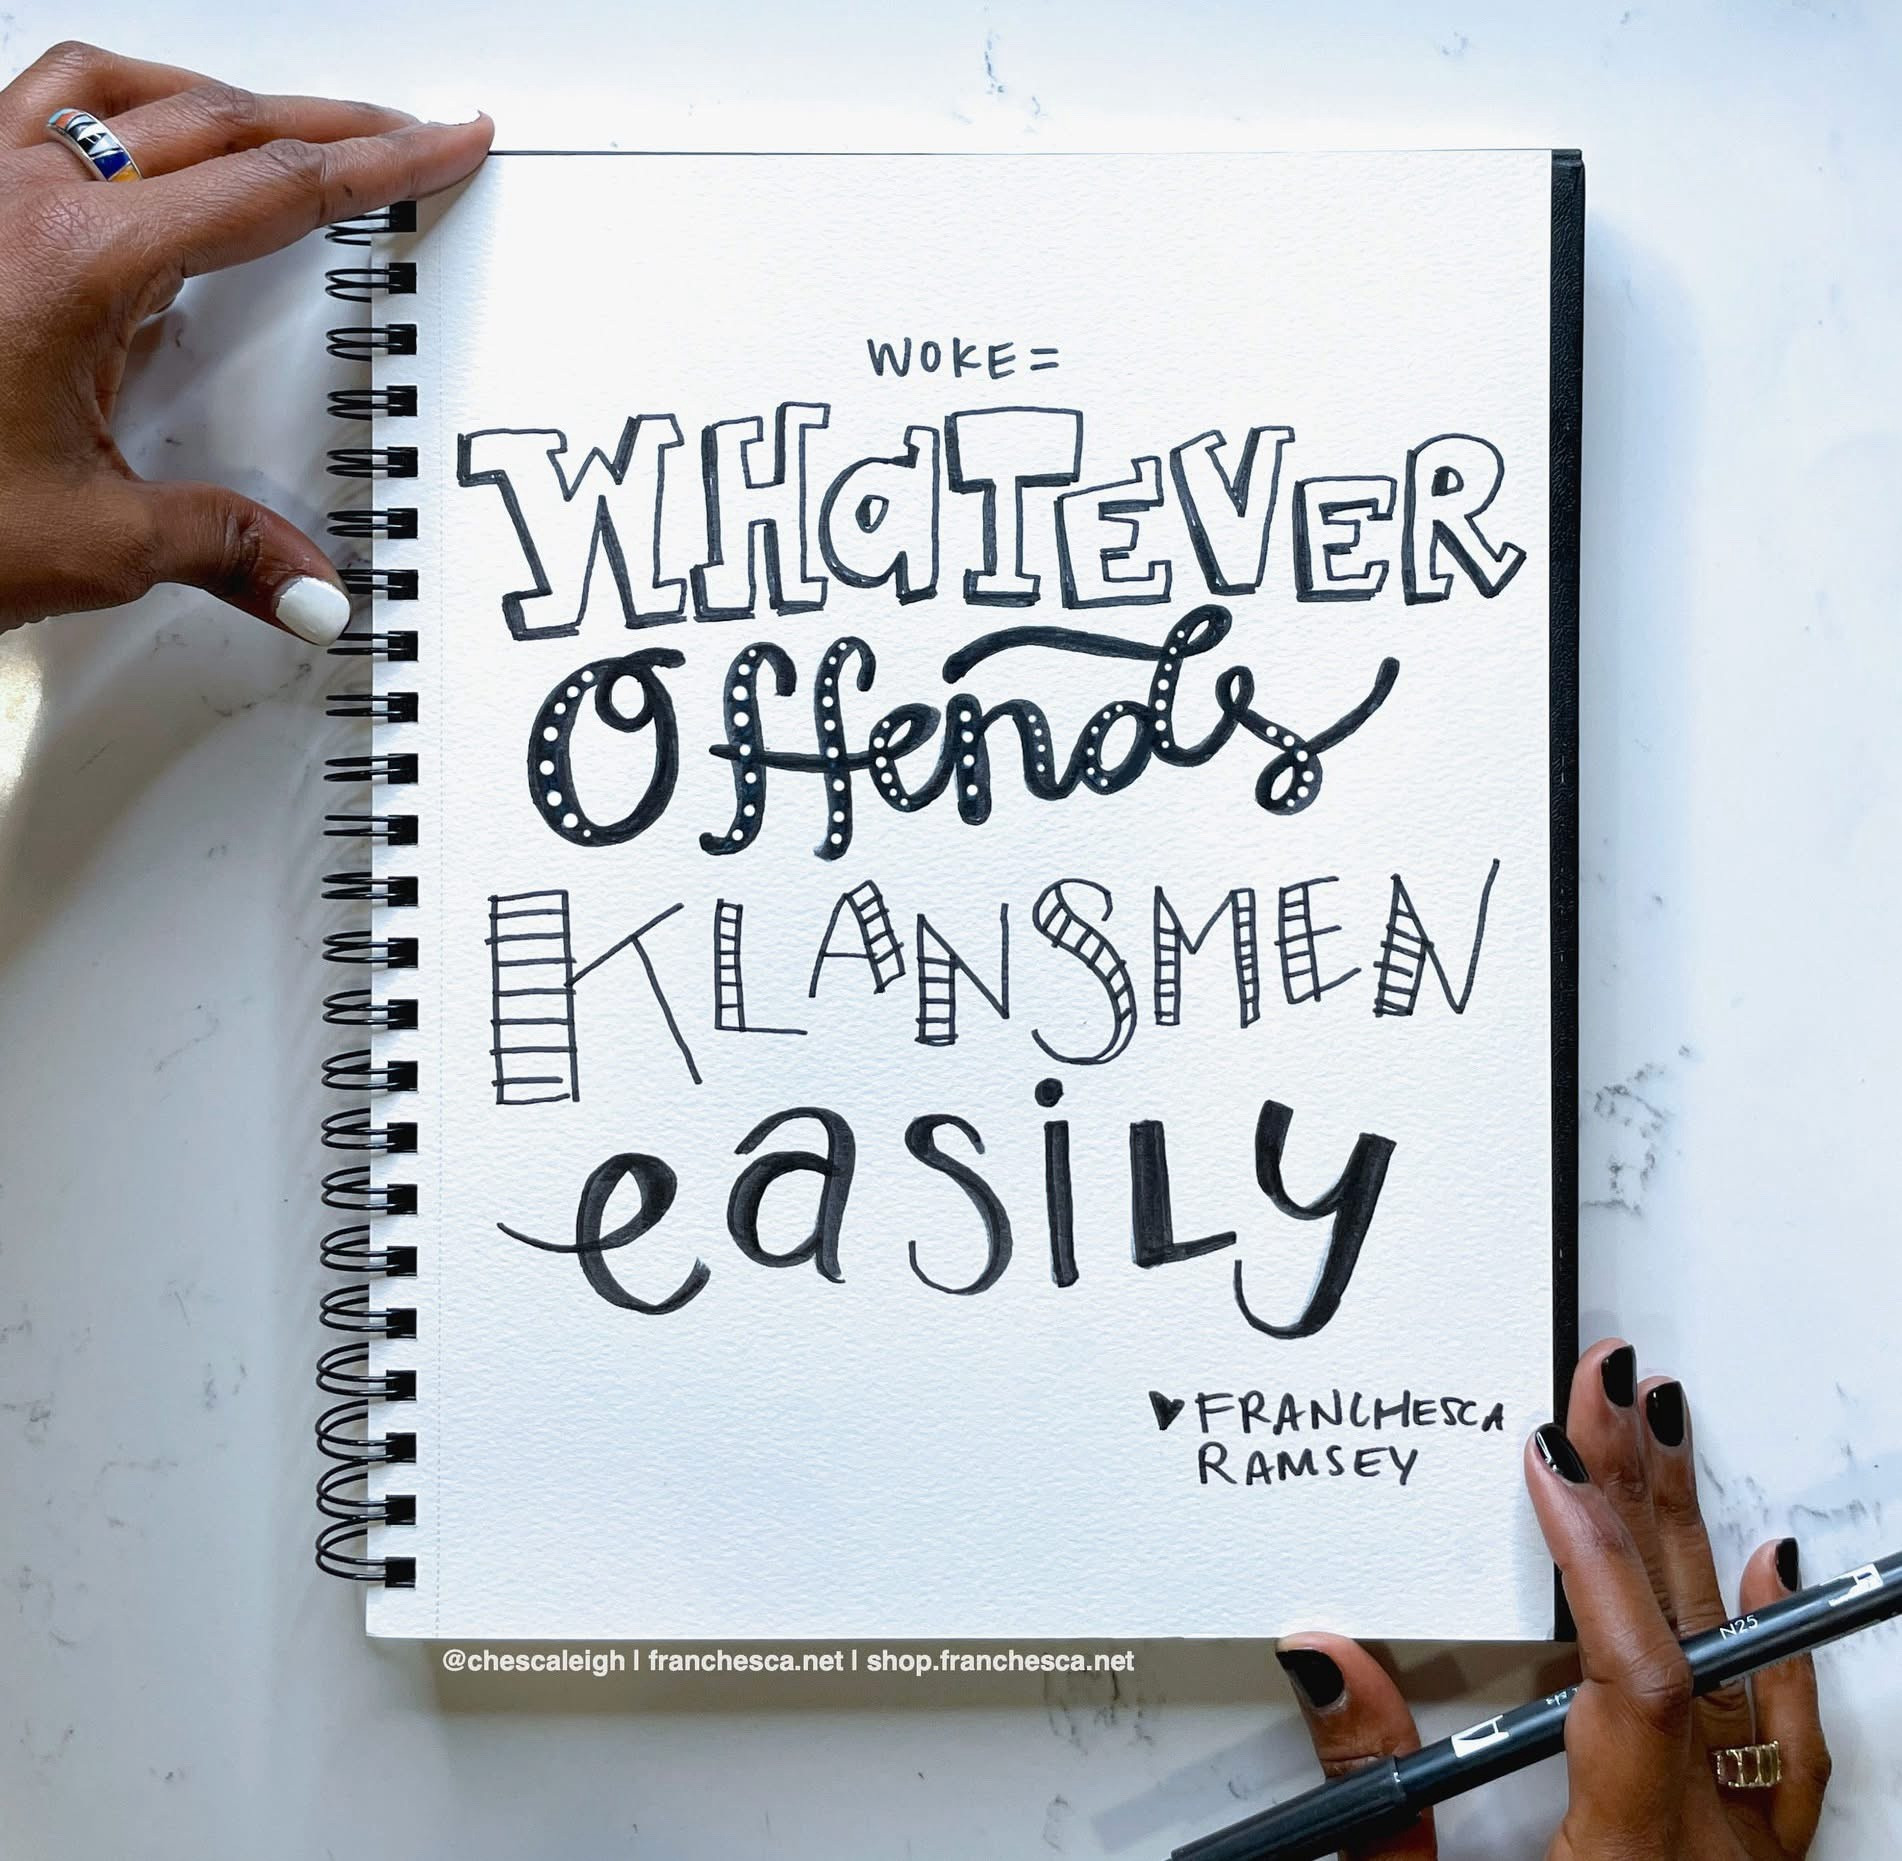 WOKE =
WHaTEVER
Offends
KLANSMEN
easiLy
♥ FRANCHESCA
RAMSEY
@chescaleigh | franchesca.net | shop.franchesca.net
N25